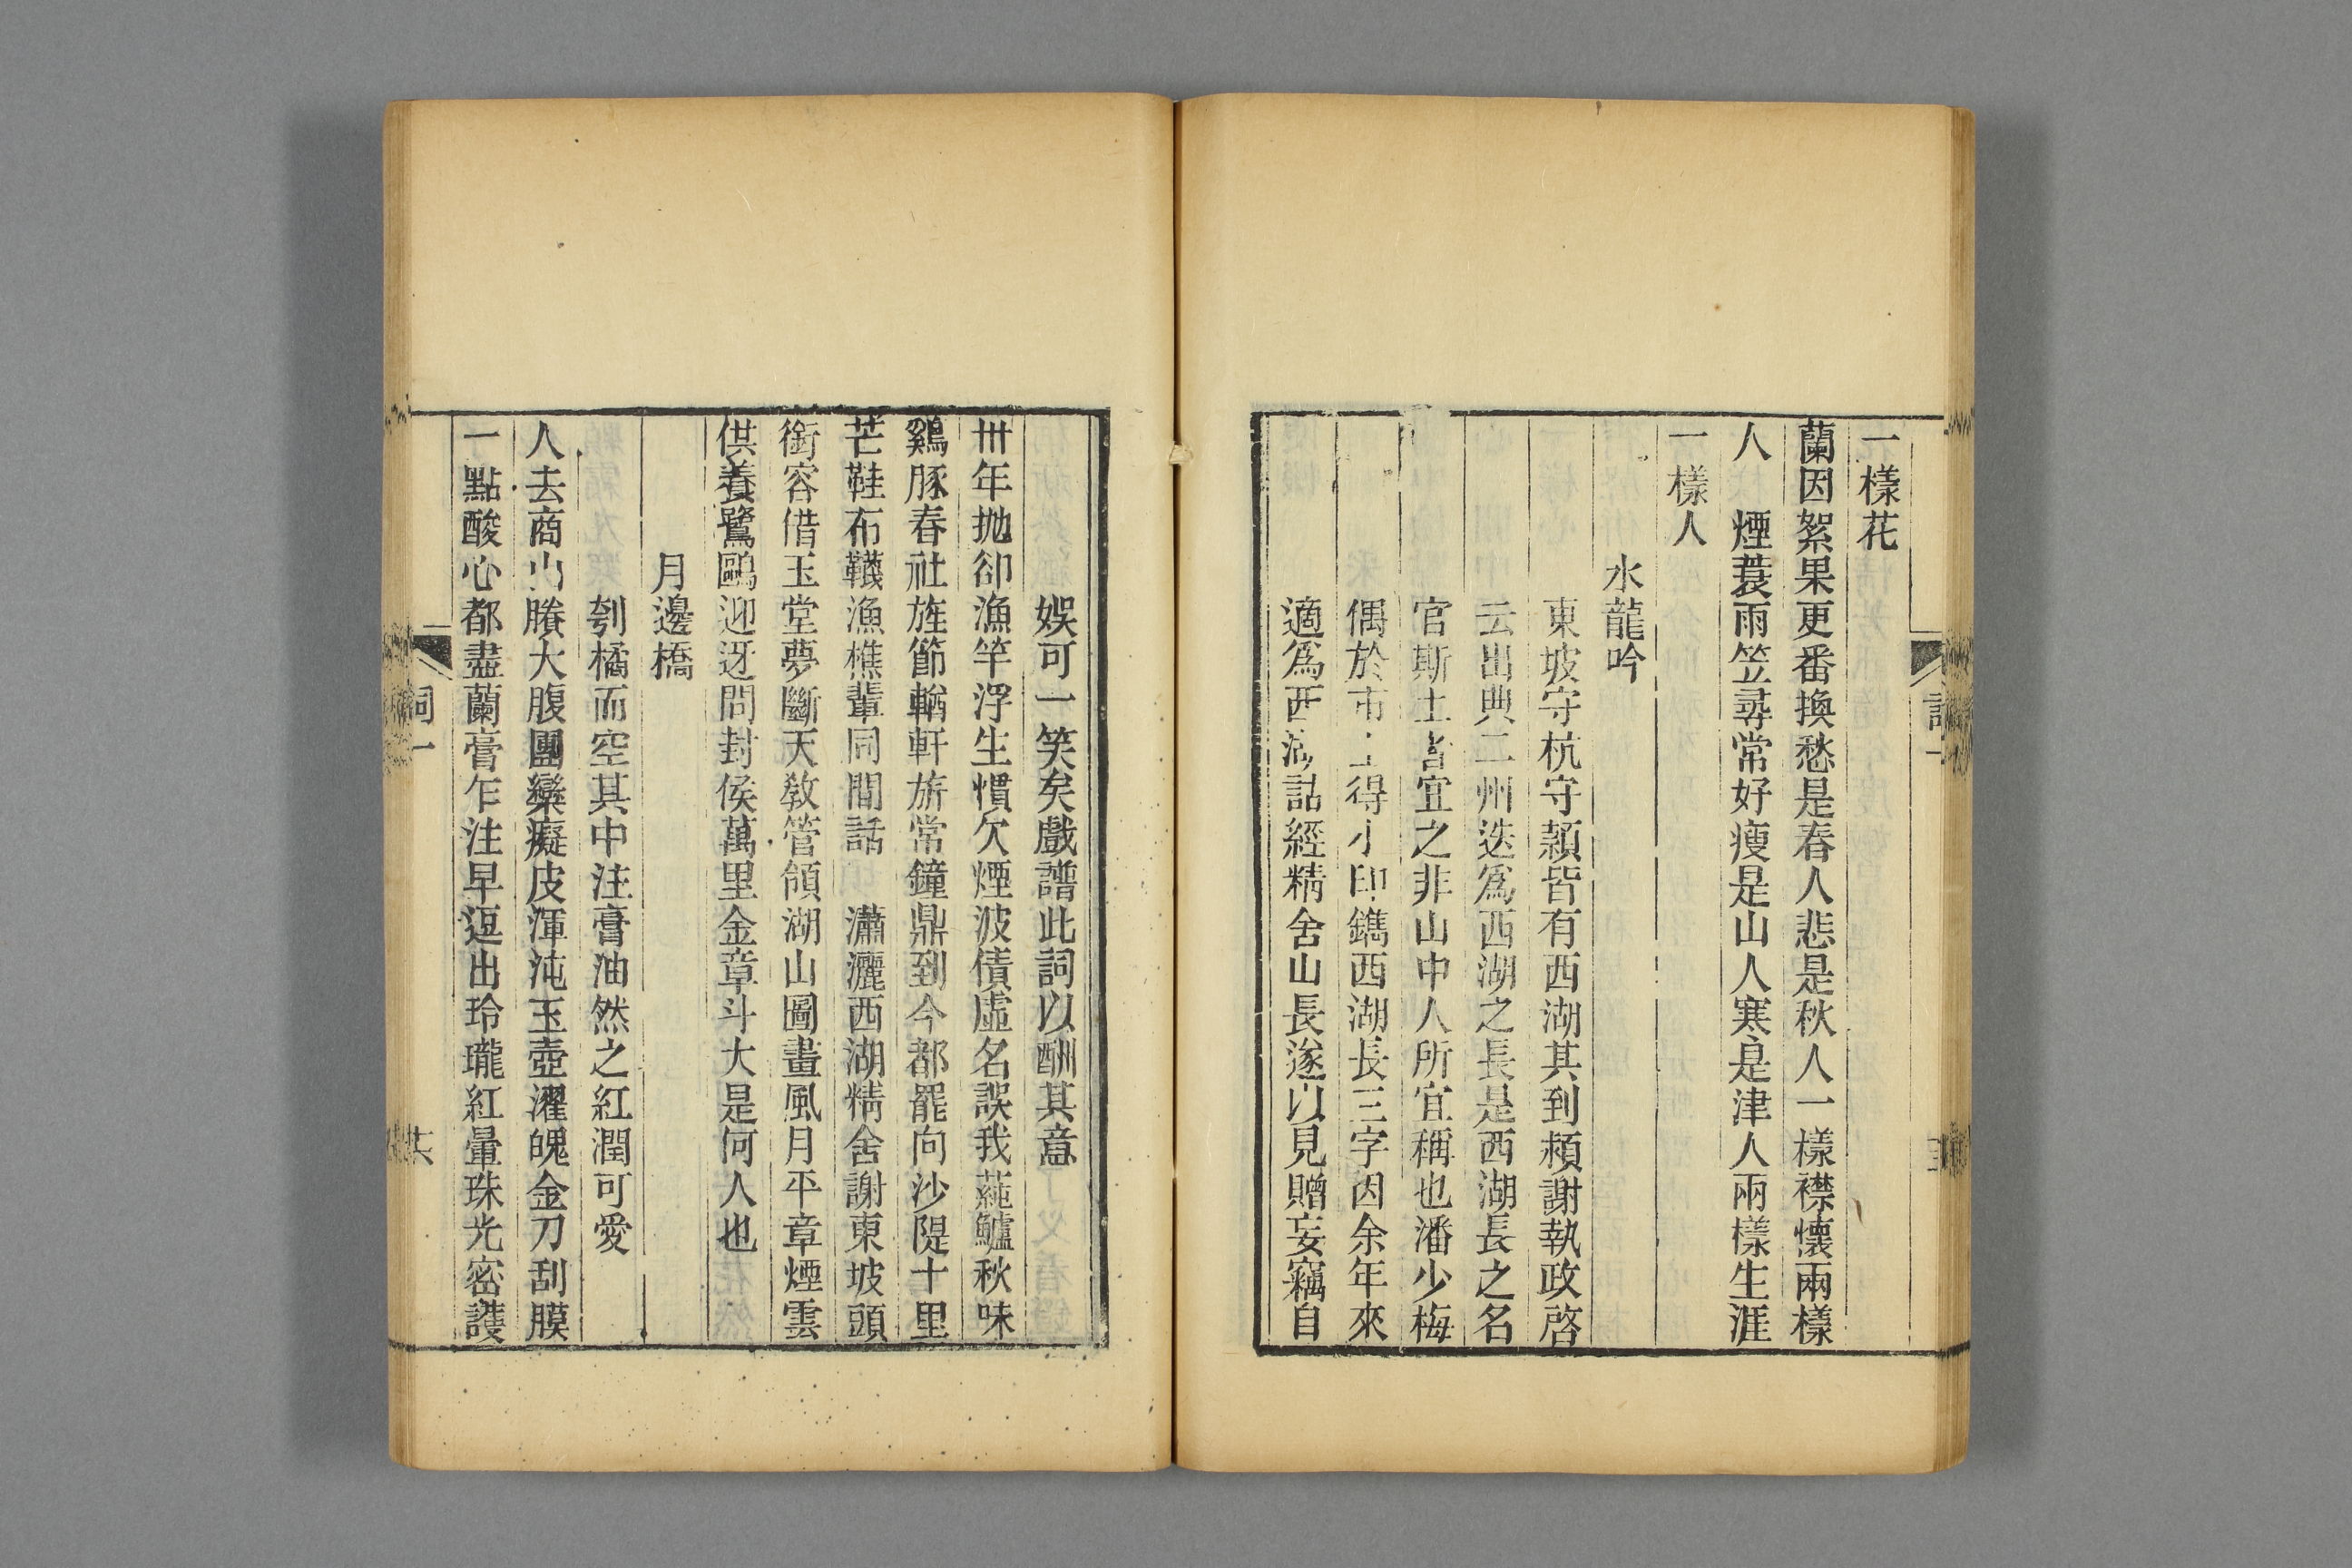 一樣花
蘭因絮果更番換愁是春人悲是秋人一樣襟懷兩樣
人　煙蓑雨笠尋常好瘦是山人寒是津人兩樣生涯
一樣人
水龍吟
東坡守杭守潁皆有西湖其到潁謝執政啓
云出典二州迭爲西湖之長是西湖長之名
官斯土者宜之非山中人所宜稱也潘少梅
偶於市上得小印鐫西湖長三字因余年來
適爲西湖詁經精舍山長遂以見贈妄竊自
娛可一笑矣戲譜此詞以酬其意
卅年拋卻漁竿浮生慣欠煙波債虛名誤我蒓鱸秋味
鷄豚春社旌節輶軒旂常鐘鼎到今都罷向沙隄十里
芒鞋布韈漁樵輩同閒話　瀟灑西湖精舍謝東坡頭
銜容借玉堂夢斷天敎管領湖山圖畫風月平章煙雲
供養鷺鷗迎迓問封侯萬里金章斗大是何人也
月邊橋
刳橘而空其中注膏油然之紅潤可愛
人去商山賸大腹團欒癡皮渾沌玉壺濯魄金刀刮膜
一點酸心都盡蘭膏乍注早逗出玲瓏紅暈珠光密護
詞一